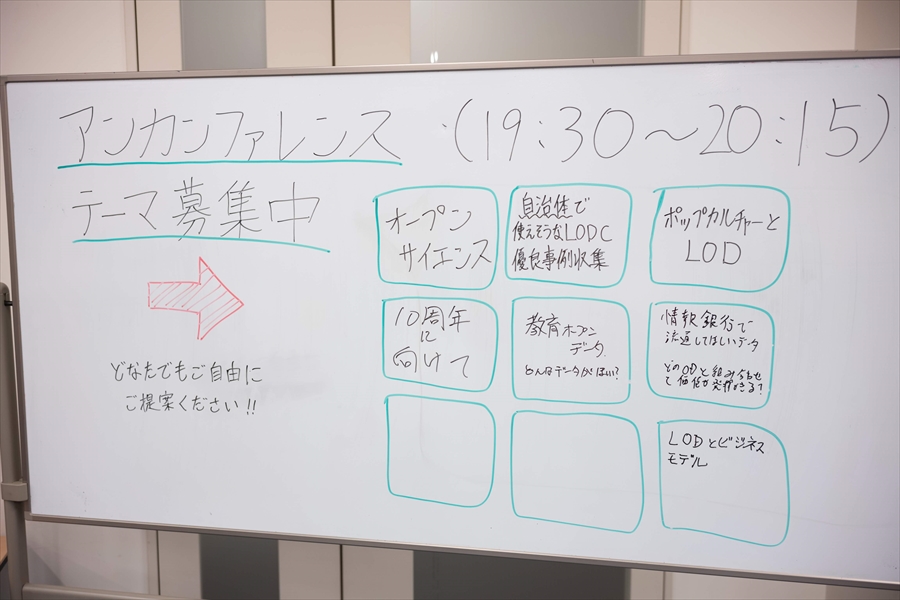 アンカンファレンス (19:30〜20:15)
テーマ募集中
どなたでもご自由に
ご提案ください!!
オープン
サイエンス
自治体で
使えそうなLODC
優良事例収集
ポップカルチャーと
LOD
10周年
に
向けて
教育オープン
データ
どんなデータがほしい?
情報銀行で
流通してほしいデータ
どのODと組み合わせ
て価値が発揮できる?
LODとビジネス
モデル